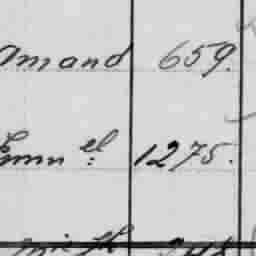 Amand 659.
Emmel: 1275.